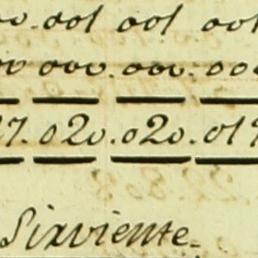 001 001 001
000. 000. 00
27. 020. 020. 019
Sirviente